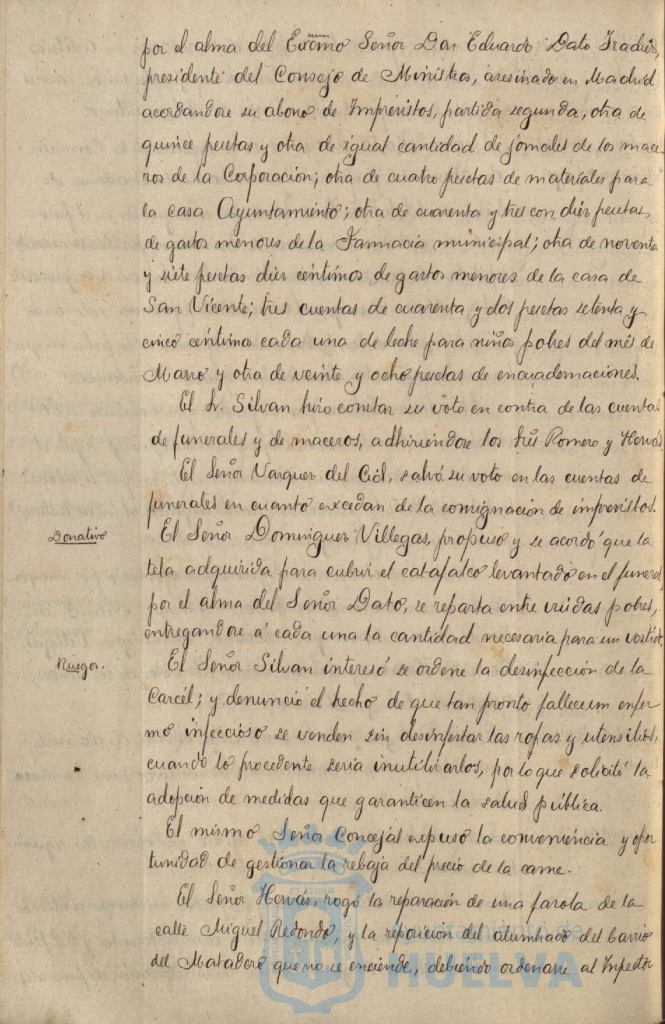 por el alma del Excmo Señor Don Eduardo Dato Iradier,
presidente del Consejo de Ministros, asesinado en Madrid
acordandose su abono de Imprevistos, partida segunda, otra de
quince pesetas y otra de igual cantidad de jornales de los mace
ros de la Corporación; otra de cuatro pesetas de materiales para
la casa Ayuntamiento; otra de cuarenta y tres con diez pesetas,
de gastos menores de la Farmacia municipal; otra de noventa
y siete pesetas diez céntimos de gastos menores de la casa de
San Vicente; tres cuentas de cuarenta y dos pesetas setenta y
cinco céntimos cada una de leche para niños pobres del més de
Marzo y otra de veinte y ocho pesetas de encuadernaciones.
El Sr. Silvan hizo constar su voto en contra de las cuentas
de funerales y de maceros, adhiriéndose los Srés Romero y Hervás
El Señor Vazquez del Cid, salvó su voto en las cuentas de
funerales en cuanto excedan de la consignación de imprevistos.
Donativo
El Señor Dominguez Villegas, propuso y se acordó que la
tela adquirida para cubrir el catafalco levantado en el funeral
por el alma del Señor Dato, se reparta entre viudas pobres,
entregandose á cada una la cantidad necesaria para un vestido.
Ruegos.
El Señor Silvan interesó se ordene la desinfección de la
Carcél; y denunció el hecho de que tan pronto fallece un enfer
mo infeccioso se venden sin desinfestar las ropas y utensilios,
cuando lo procedente seria inutilizarlos, por lo que solicitó la
adopción de medidas que garanticen la salud pública.
El mismo Señor Concejal expuso la conveniencia y opor
tunidad de gestionar la rebaja del precio de la carne.
El Señor Hervás, rogó la reparación de una farola de la
calle Miguel Redondo, y la reposición del alumbrado del barrio
del Matadero que no se enciende, debiendo ordenarse al Inspector
Ayuntamiento de
HUELVA